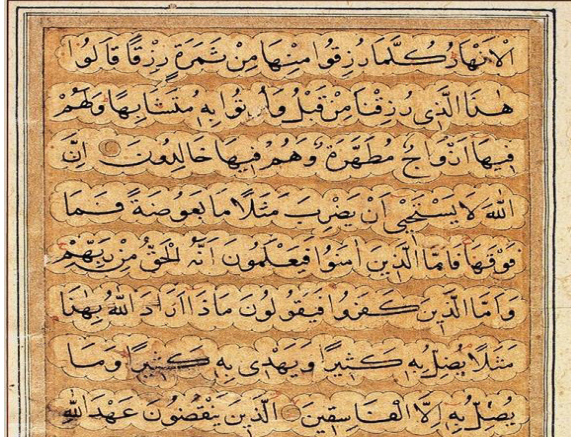 الْاَنْهَارُ كُلَّمَا رُزِقُوا مِنْهَا مِنْ ثَمَرَةٍ رِزْقًا قَالُوا
هٰذَا الَّذٖى رُزِقْنَا مِنْ قَبْلُ وَاُتُوا بِهٖ مُتَشَابِهًا وَلَهُمْ
فٖيهَا اَزْوَاجٌ مُطَهَّرَةٌ وَهُمْ فٖيهَا خَالِدُونَ اِنَّ
اللّٰهَ لَا يَسْتَحْيٖى اَنْ يَضْرِبَ مَثَلًا مَا بَعُوضَةً فَمَا
فَوْقَهَا فَاَمَّا الَّذٖينَ اٰمَنُوا فَيَعْلَمُونَ اَنَّهُ الْحَقُّ مِنْ رَبِّهِمْ
وَاَمَّا الَّذٖينَ كَفَرُوا فَيَقُولُونَ مَاذَا اَرَادَ اللّٰهُ بِهٰذَا
مَثَلًا يُضِلُّ بِهٖ كَثٖيرًا وَيَهْدٖى بِهٖ كَثٖيرًا وَمَا
يُضِلُّ بِهٖ اِلَّا الْفَاسِقٖينَ الَّذٖينَ يَنْقُضُونَ عَهْدَ اللّٰهِ